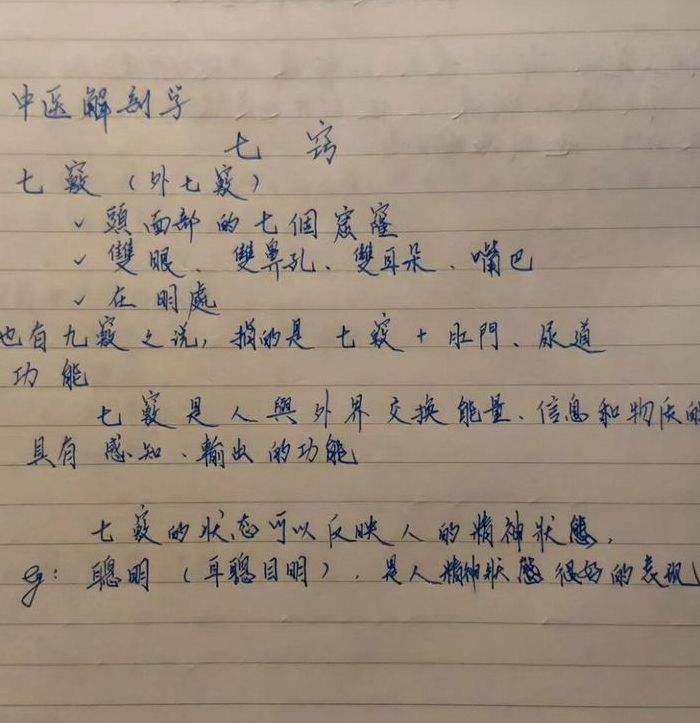 中医解剖学
七窍
七竅（外七竅）
✓ 頭面部的七個窟窿
✓ 雙眼、雙鼻孔、雙耳朵、嘴巴
✓ 在明處
也有九竅之说，指的是七竅+肛門、尿道
功能
七竅是人與外界交换能量、信息和物质的
具有感知、輸出的功能
七竅的状态可以反映人的精神狀態，
eg：聰明（耳聰目明），是人精神狀態很好的表现